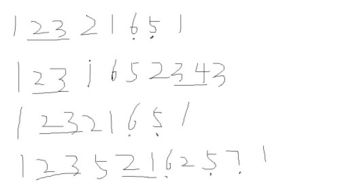 1 2 3 2 1 6 5 1
1 2 3 1 6 5 2 3 4 3
1 2 3 2 1 6 5 1
1 2 3 5 2 1 6 2 5 7 1